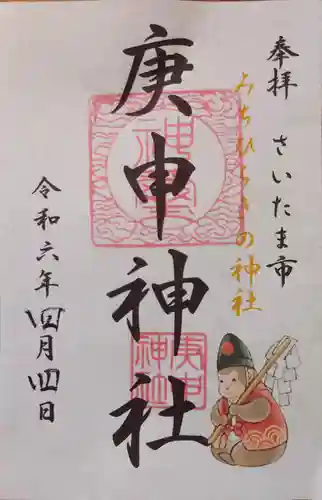 奉拝 さいたま市
みちひらきの神社
庚申神社
令和六年四月四日
庚申
神社